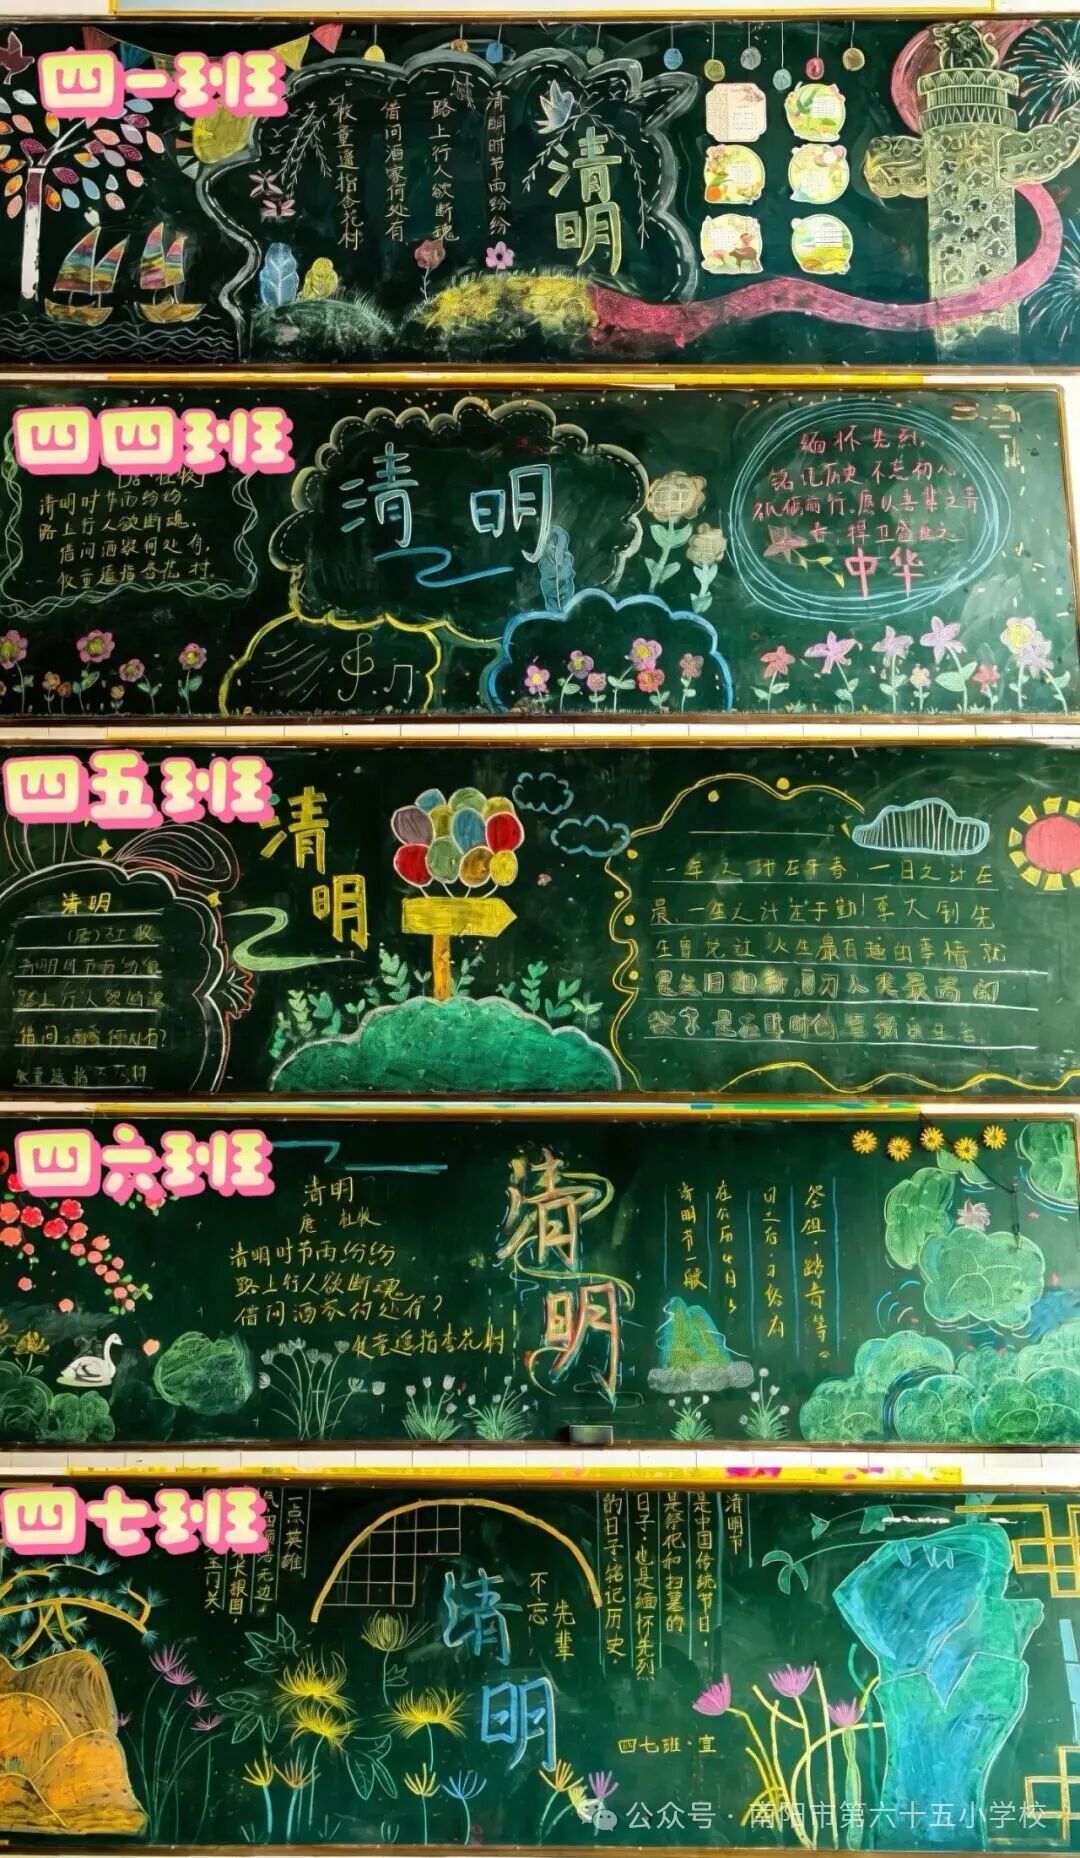 四一班
清明
清明时节雨纷纷
路上行人欲断魂
借问酒家何处有
牧童遥指杏花村
四四班
清明时节雨纷纷,
路上行人欲断魂。
借问酒家何处有,
牧童遥指杏花村。
清明
缅怀先烈,
铭记历史 不忘初心,
砥砺前行。愿以吾辈之青
春,捍卫盛世之
中华
四五班
清明
(唐)杜牧
清明时节雨纷纷
路上行人欲断魂
借问酒家何处有?
牧童遥指 村
清明
一年之计在于春,一日之计在
晨,一生之计在于勤!李大钊先
生曾说过 人生最有趣的事情,就
四六班
清明
唐·杜牧
清明时节雨纷纷,
路上行人欲断魂
借问酒家何处有?
牧童遥指杏花村
清明
清明节一般
在公历4月5
日之后。
祭祖、踏青等。
四七班
一点英雄
不忘
先辈
清明
清明节
是中国传统节日,
是祭祀和扫墓的
日子,也是缅怀先烈
的日子铭记历史
四七班·宣
公众号·南阳市第六十五小学校